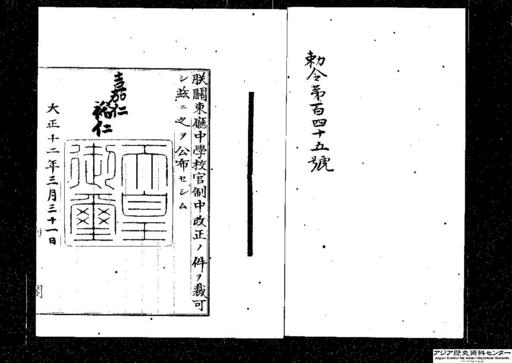 勅令第百四十五號
朕關東廳中學校官制中改正ノ件ヲ裁可
シ茲ニ之ヲ公布セシム
嘉仁
裕仁
天皇
御璽
大正十二年三月三十一日
内
閣
アジア歴史資料センター
Japan Center for Asian Historical Records